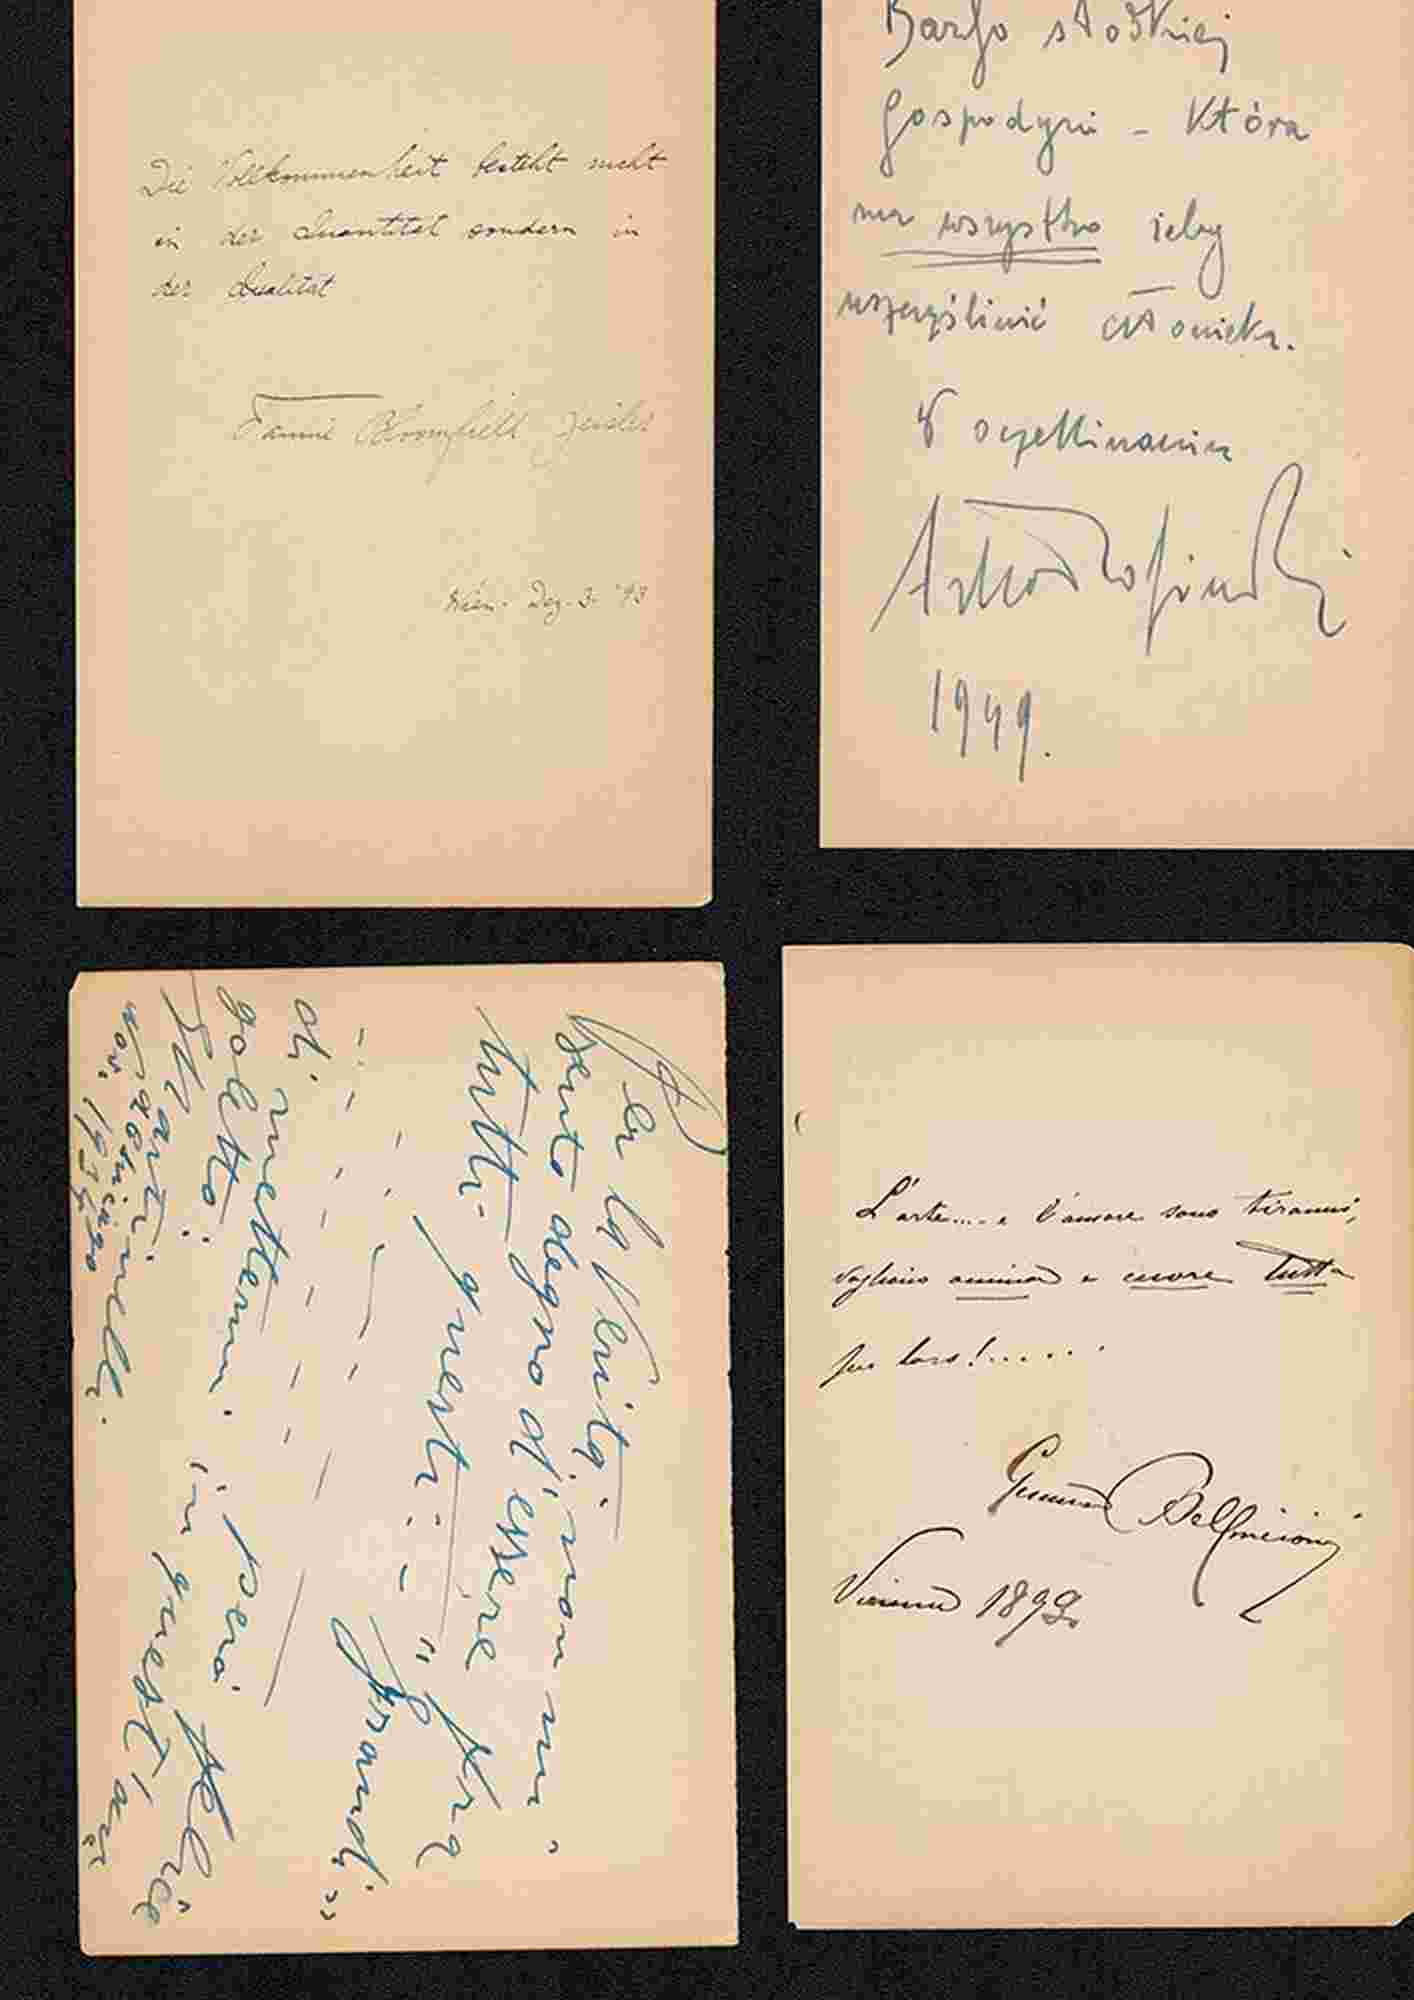 Die Vollkommenheit besteht nicht
in der Quantität sondern in
der Qualität
Fannie Bloomfield Zeisler
Wien. Dez. 3. '93
Bardzo słodkiej
Gospodyni – która
ma wszystko żeby
uszczęśliwić człowieka.
W oczekiwaniu
Artur Rodzinski
1949.
Per la verità, non mi
sento degno d'essere
tra
tutti questi: – "grandi"
di mettermi. però felice
in quest'au
goletto!
Martinelli
Nov. 1934
Chicago
L'arte.... e l'amore sono tiranni,
vogliono anima e cuore tutto
per loro!......
Gemma Bellincioni
Vienna 1892